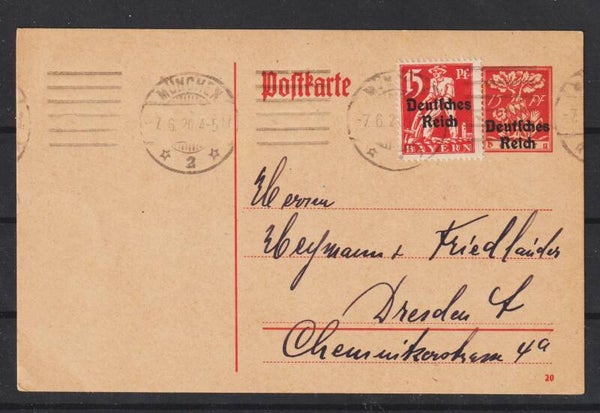 MÜNCHEN
7.6.20. 4-5N
2
Postkarte
15 Pf.
Deutsches
Reich
BAYERN
15 Pf
Deutsches
Reich
Herren
Heymann + Friedländer
Dresden A
Chemnitzerstrasse 4a
20